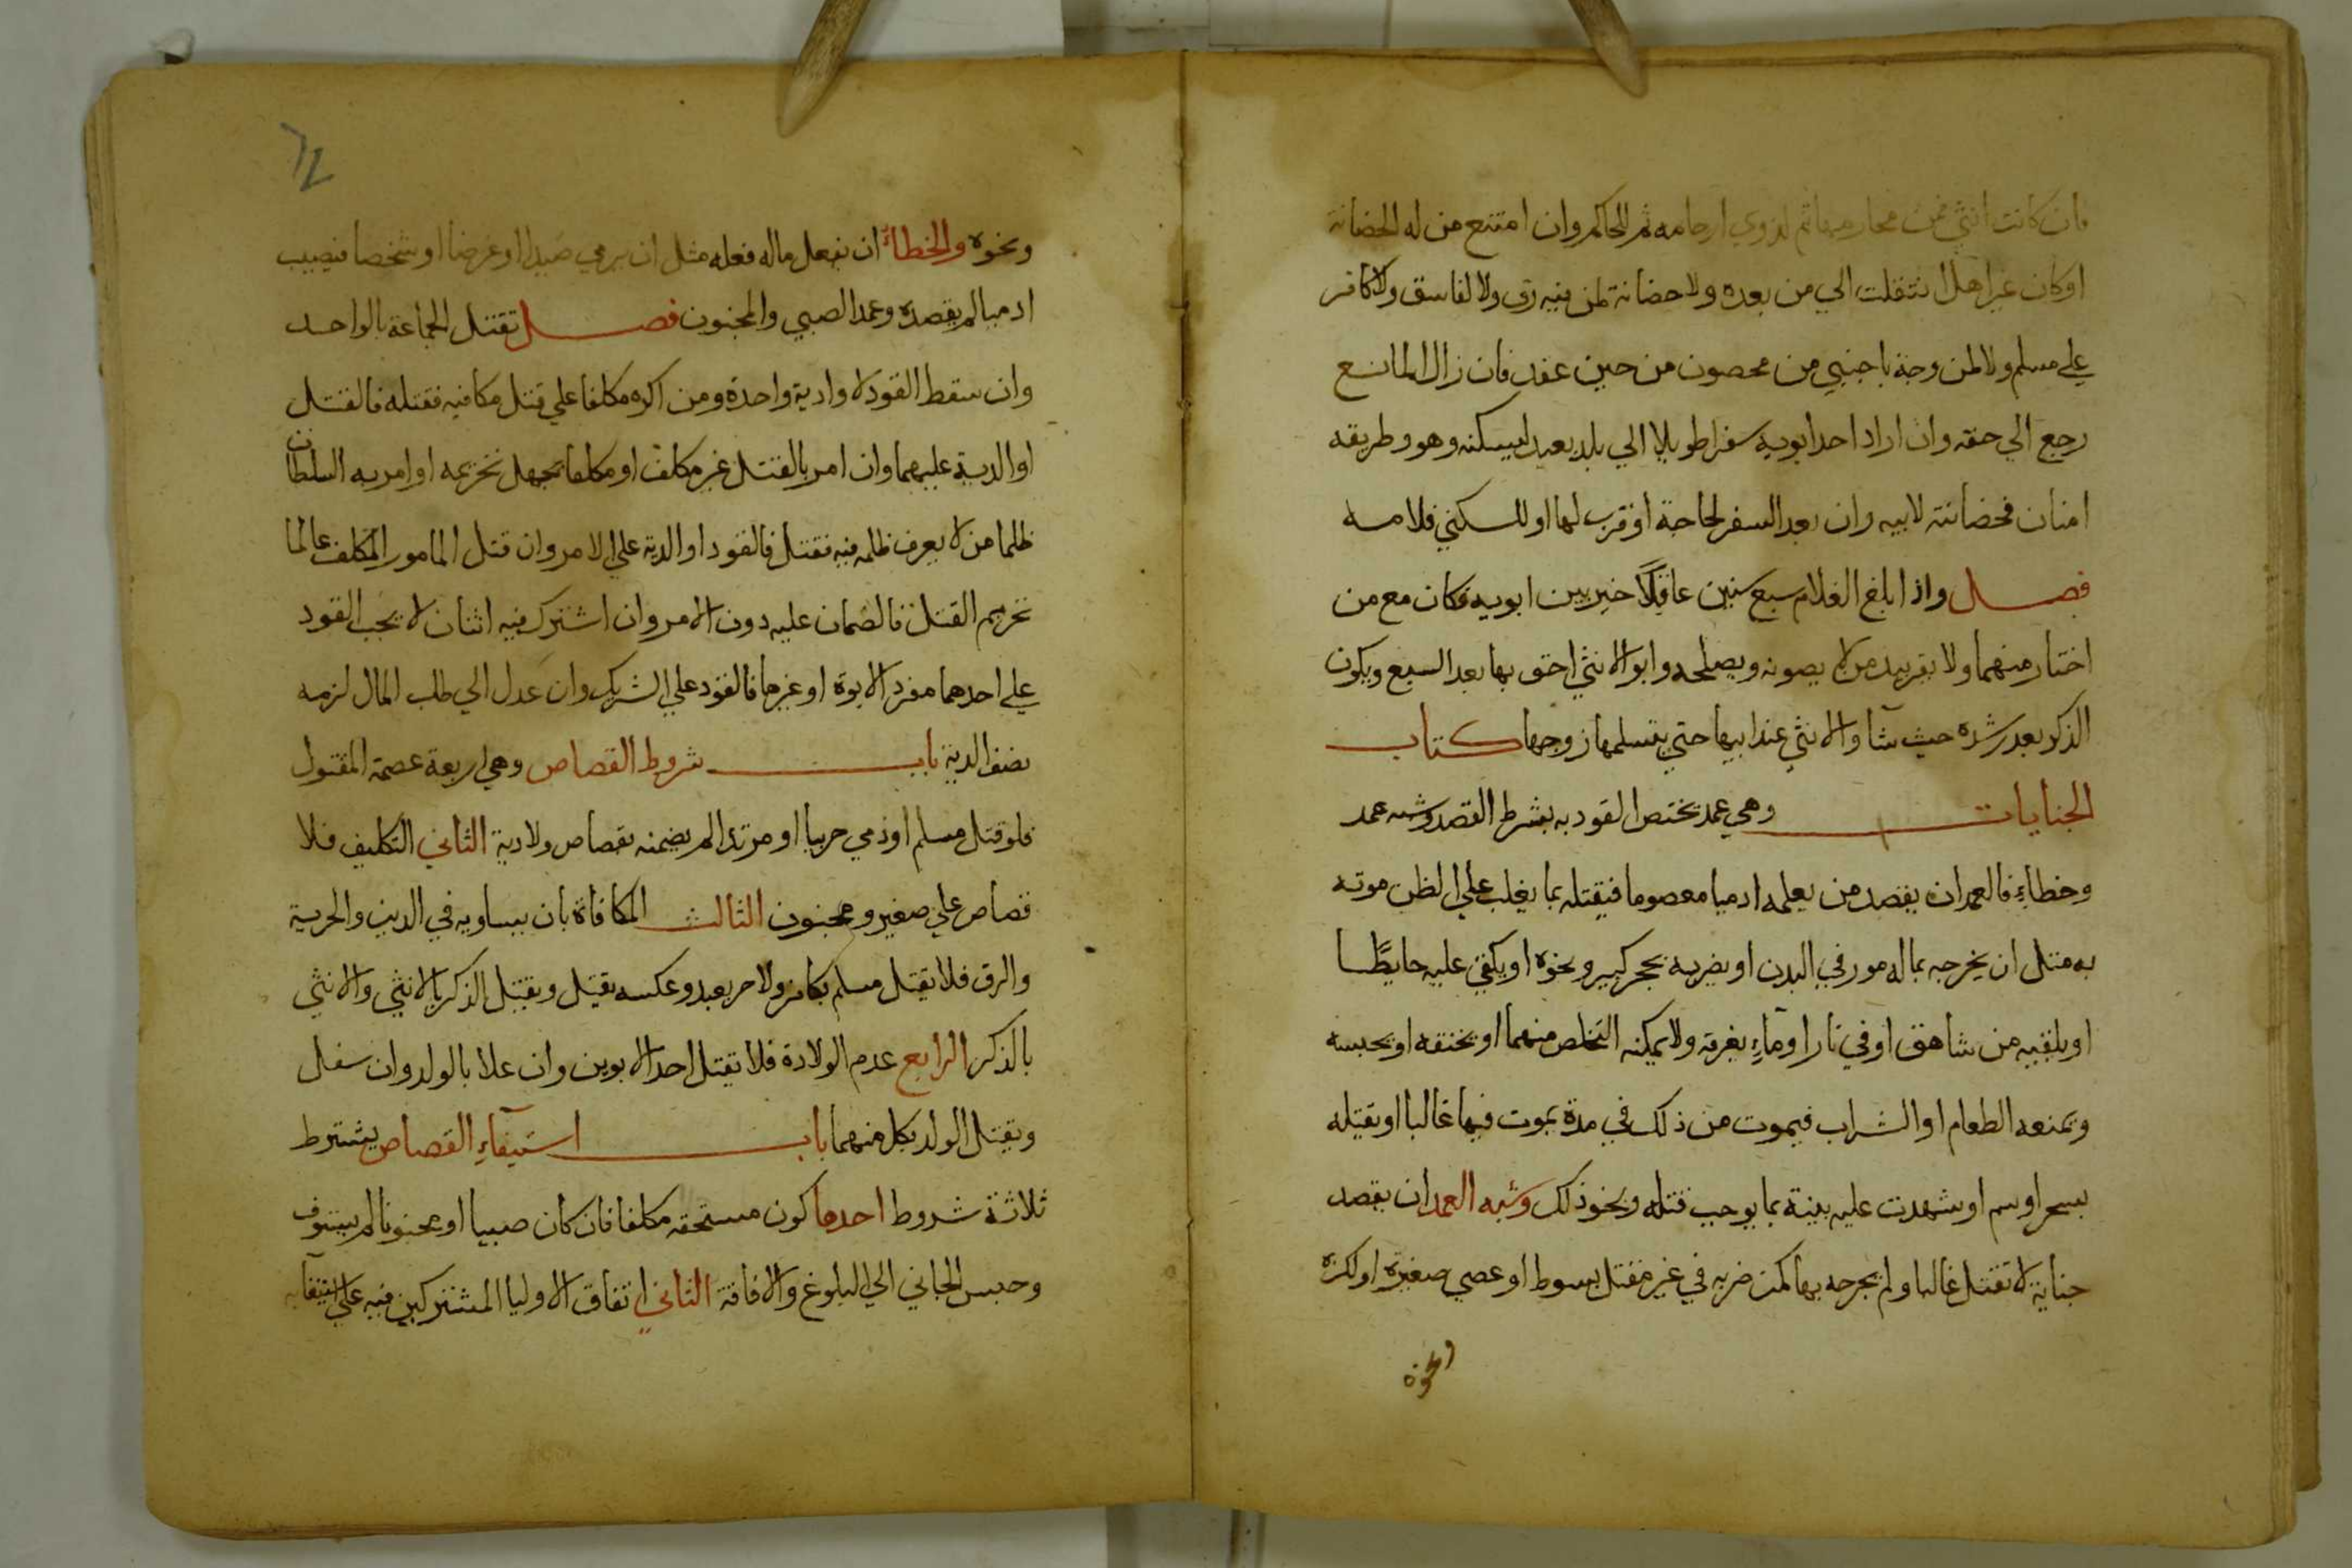 فان كانت انثي فمن محارمها ثم لذوي ارحامه ثم للحاكم وان امتنع من له الحضانة
او كان غير اهل انتقلت الي من بعده ولا حضانة لمن فيه رق ولا لفاسق ولا كافر
علي مسلم ولا لمزوجة باجنبي من محضون من حين عقد فان زال المانع
رجع الي حقه وان اراد احد ابويه سفرا طويلا الي بلد بعيد ليسكنه وهو وطريقه
امنان فحضانته لابيه وان بعد السفر لحاجة او قرب لها او للسكني فلامه
فصل واذا بلغ الغلام سبع سنين عاقلا خير بين ابويه فكان مع من
اختار منهما ولا يقر بيد من لا يصونه ويصلحه وابو الانثي احق بها بعد السبع ويكون
الذكر بعد رشده حيث شآ والانثي عند ابيها حتي يتسلمها زوجها كتاب
الجنايات وهي عمد يختص القود به بشرط القصد وشبه عمد
وخطاء فالعمد ان يقصد من يعلمه ادميا معصوما فيقتله بما يغلب علي الظن موته
به مثل ان يجرحه بما له مور في البدن او يضربه بحجر كبير ونحوه او يلقي عليه حايطا
او يلقيه من شاهق او في نار او مآء يغرقه ولا يمكنه التخلص منهما او يخنقه او يحبسه
ويمنعه الطعام او الشراب فيموت من ذلك في مدة يموت فيها غالبا او يقتله
بسحر او سم او شهدت عليه بينة بما يوجب قتله ونحو ذلك وشبه العمد ان يقصد
جناية لا تقتل غالبا ولم يجرحه بها كمن ضربه في غير مقتل بسوط او عصي صغيرة او لكزه
ونحوه
ونحوه والخطاء ان يفعل ماله فعله مثل ان يرمي صيدا او غرضا او شخصا فيصيب
ادميا لم يقصده وعمد الصبي والمجنون فصل تقتل الجماعة بالواحد
وان سقط القود لا وا دية واحدة ومن اكره مكلفا علي قتل مكافيه فقتله فالقتل
او الدية عليهما وان امر بالقتل غير مكلف او مكلفا يجهل تحريمه او امر به السلطان
ظلما من لا يعرف ظلمه فيه فقتل فالقود او الدية علي الامر وان قتل المامور المكلف عالما
تحريم القتل فالضمان عليه دون الامر وان اشترك فيه اثنان لا يجب القود
علي احدهما مفردا لابوة او غيرها فالقود علي الشريك وان عدل الي طلب المال لزمه
نصف الدية باب شروط القصاص وهي اربعة عصمة المقتول
فلو قتل مسلم او ذمي حربيا او مرتدا لم يضمنه بقصاص ولا دية الثاني التكليف فلا
قصاص علي صغير ومجنون الثالث المكافاة بان يساويه في الدين والحرية
والرق فلا يقتل مسلم بكافر ولا حر بعبد وعكسه يقتل ويقتل الذكر بالانثي والانثي
بالذكر الرابع عدم الولادة فلا يقتل احد الابوين وان علا بالولد وان سفل
ويقتل الولد بكل منهما باب استيفآء القصاص يشترط
ثلاثة شروط احدها كون مستحقه مكلفا فان كان صبيا او مجنونا لم يستوف
وحبس الجاني الي البلوغ والافاقة الثاني اتفاق الاوليا المشتركين فيه علي استيفآيه